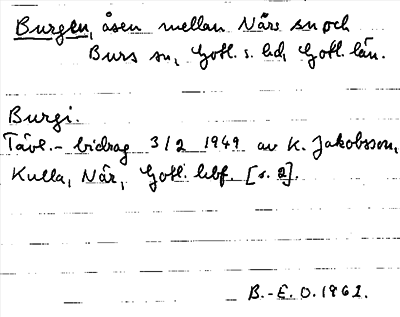 Burgen, åsen mellan Närs sn och
Burs sn, Gotl. s. hd, Gotl. län.
Burgi.
Tävl.-bidrag 3/2 1949 av K. Jakobsson,
Kulla, När, Gotl. hbf. [s. 2].
B.-E. O. 1962.